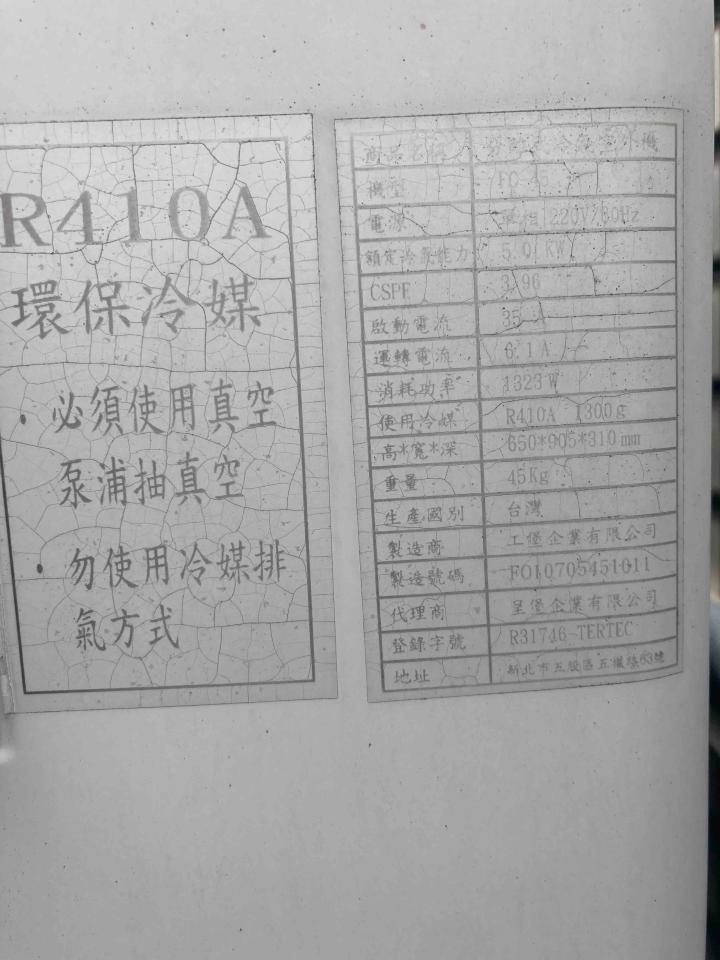 R410A
環保冷媒
・必須使用真空
泵浦抽真空
・勿使用冷媒排
氣方式
商品名稱
機型
電源 單相 220V/60Hz
額定冷氣能力 5.0 KW
CSPF 3.96
啟動電流 35 A
運轉電流 6.1 A
消耗功率 1323 W
使用冷媒 R410A 1300g
高*寬*深 650*905*310 mm
重量 45Kg
生產國別 台灣
製造商 工堡企業有限公司
製造號碼 FO10705451011
代理商 呈堡企業有限公司
登錄字號 R31746-TERTEC
地址 新北市五股區五權路63號